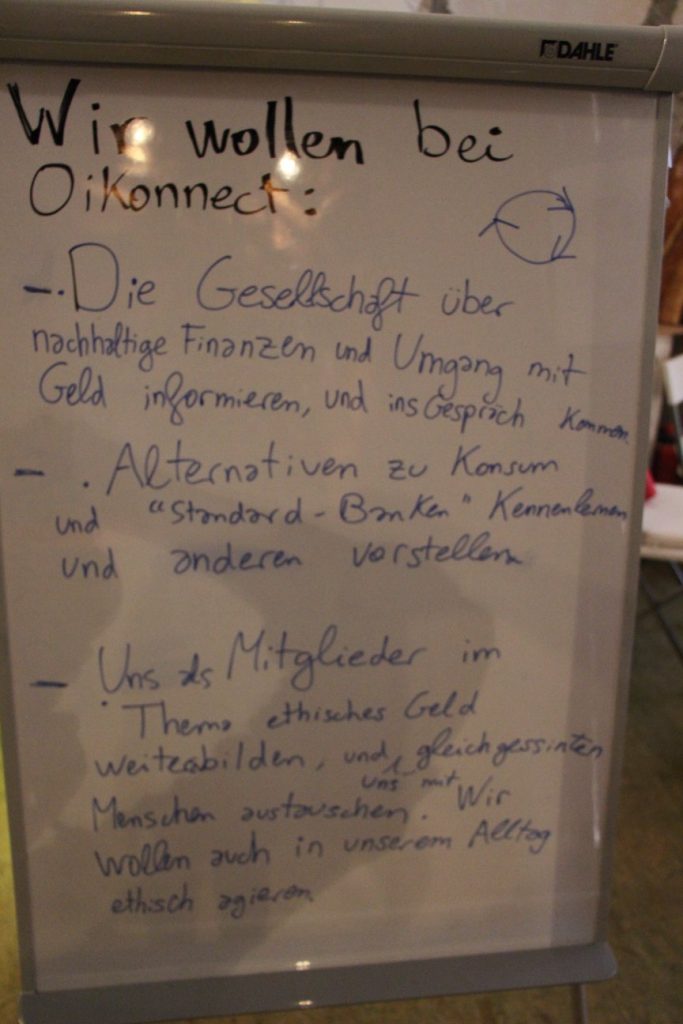 DAHLE
Wir wollen bei
Oikonnect:
-. Die Gesellschaft über
nachhaltige Finanzen und Umgang mit
Geld informieren, und ins Gespräch kommen
- . Alternativen zu Konsum
und "Standard-Banken" kennenlernen
und anderen vorstellen
- Uns als Mitglieder im
Thema ethisches Geld
weiterbilden, und gleichgessinten
uns mit
Menschen austauschen. Wir
wollen auch in unserem Alltag
ethisch agieren.